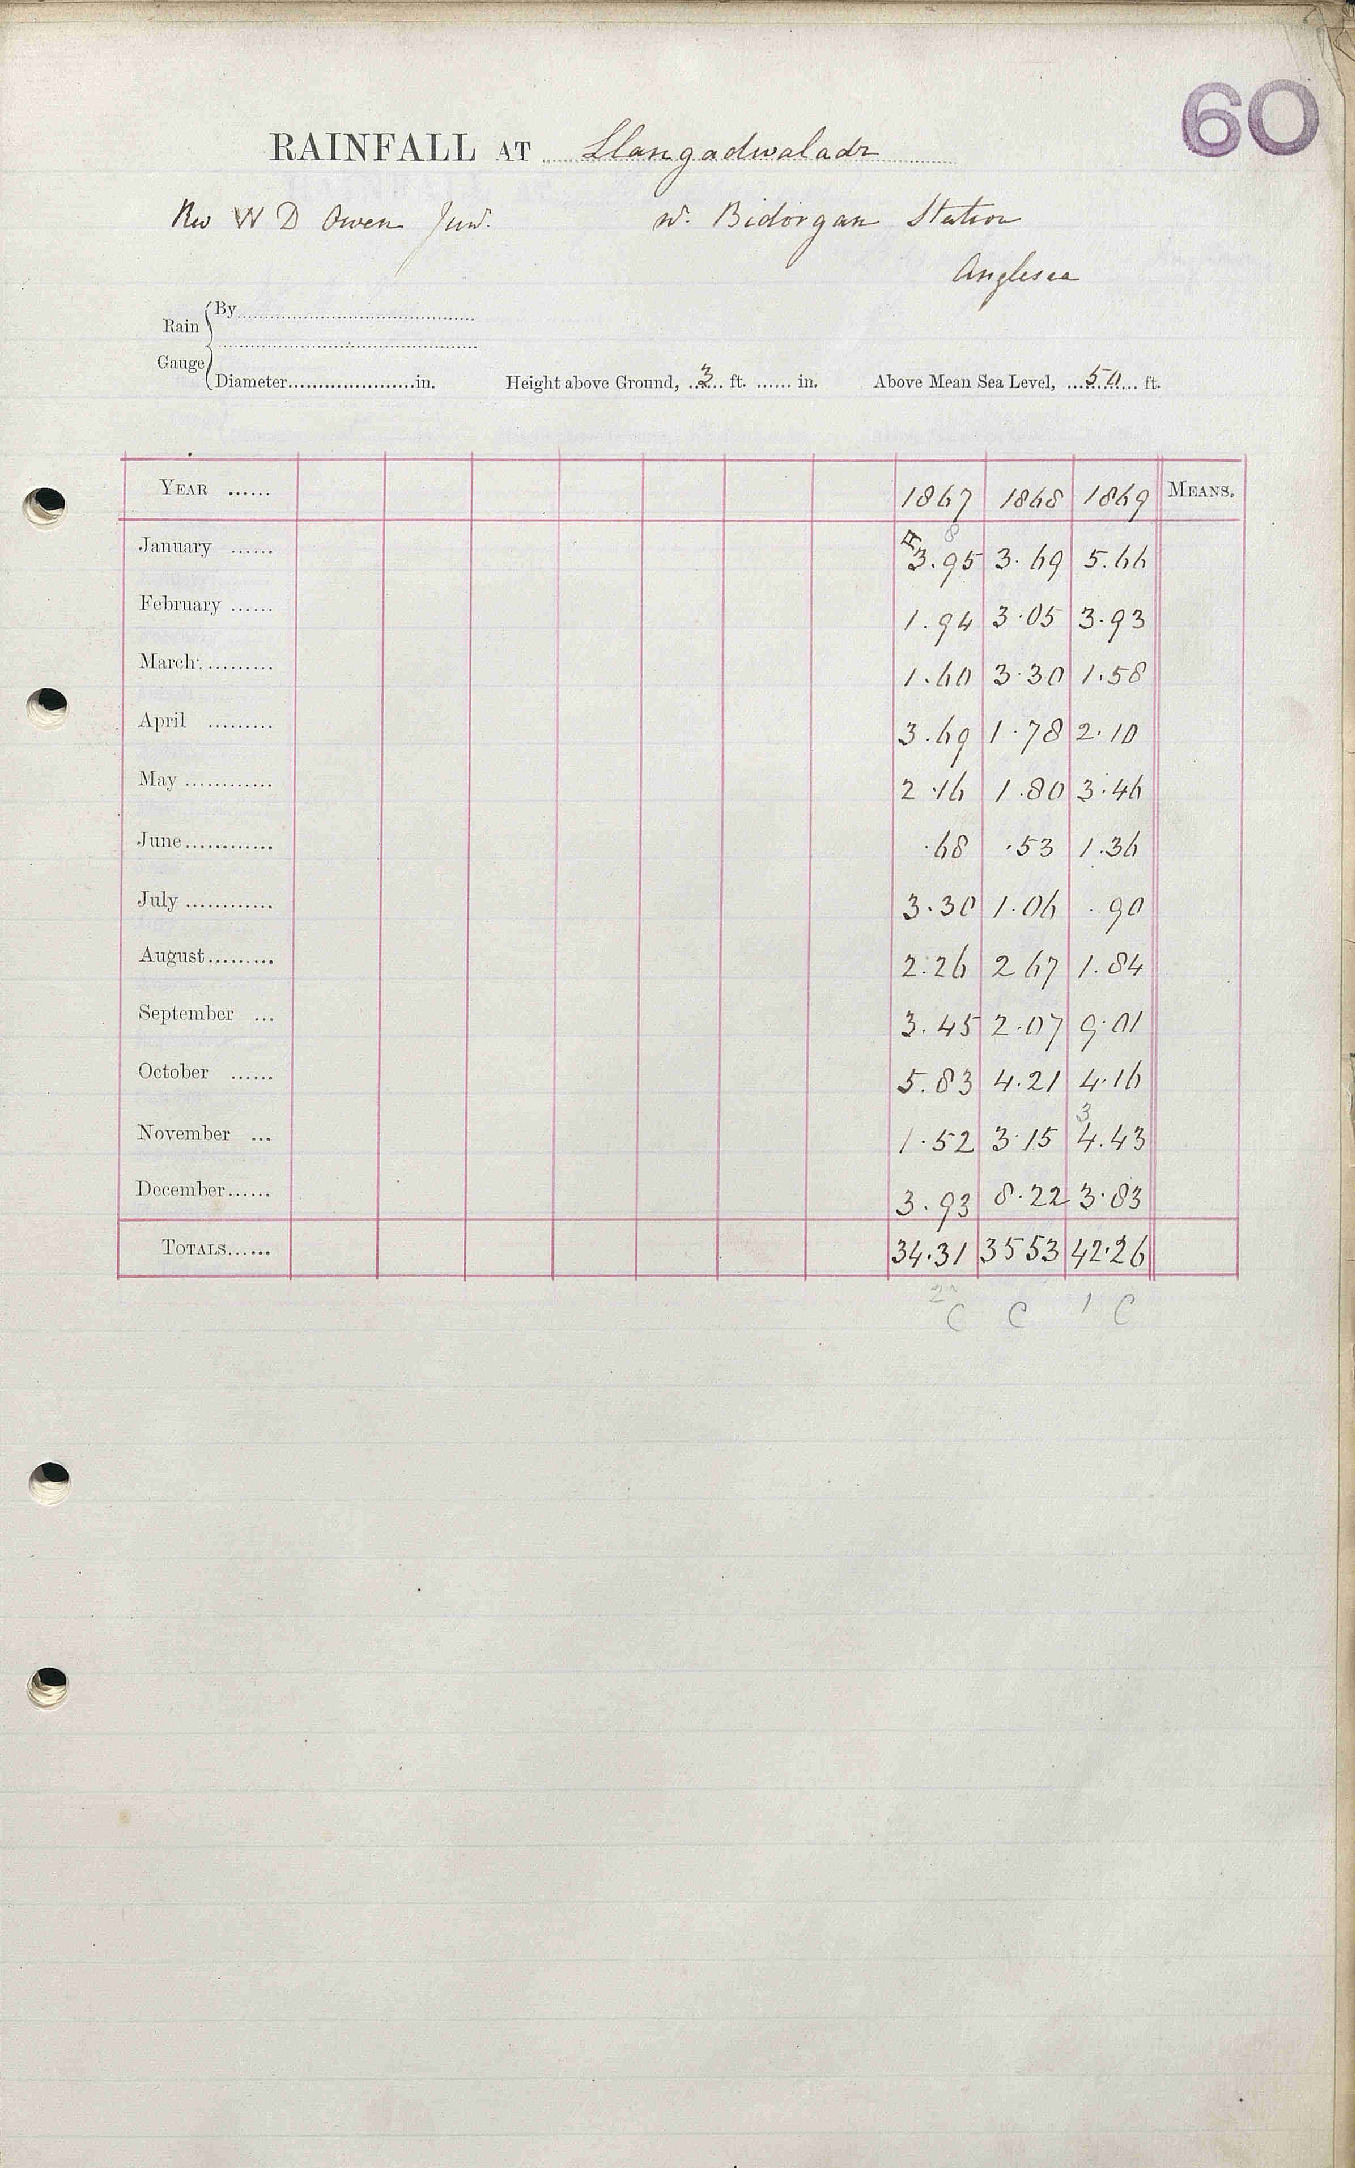 60
RAINFALL AT Llangadwaladr
Rev W D Owen Junr. nr. Bidorgan Station
Anglesea
Rain Gauge
By
Diameter in. Height above Ground, 3 ft. in. Above Mean Sea Level, 50 ft.
YEAR 1867 1868 1869 MEANS.
8
January 3.95 3.69 5.66
February 1.94 3.05 3.93
March 1.60 3.30 1.58
April 3.69 1.78 2.10
May 2.16 1.80 3.46
June .68 .53 1.36
July 3.30 1.06 .90
August 2.26 2 67 1.84
September 3.45 2.07 9.01
October 5.83 4.21 4.16
3
November 1.52 3.15 4.43
December 3.93 8.22 3.83
TOTALS 34.31 35 53 42.26
C C 1 C